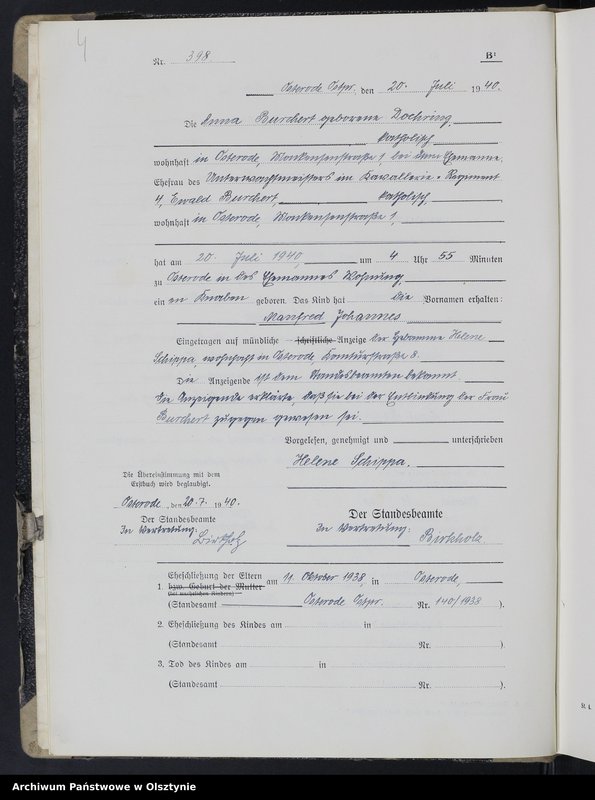 4
Nr. 398. B¹
Osterode Ostpr. den 20. Juli 1940.
Die Anna Burchert geborene Doehring,
katholisch
wohnhaft in Osterode, bei dem Ehemanne,
Ehefrau des Unterwachtmeisters im Kavallerie-Regiment
4, Ewald Burchert katholisch,
wohnhaft in Osterode,
hat am 20. Juli 1940, um 4 Uhr 55 Minuten
zu Osterode in des Ehemannes Wohnung,
ein en Knaben geboren. Das Kind hat die Vornamen erhalten:
Manfred Johannes
Eingetragen auf mündliche – schriftliche – Anzeige der Hebamme Helene
Schippa, wohnhaft in Osterode, Komturstraße 8.
Die Anzeigende ist dem Standesbeamten bekannt.
Die Anzeigende erklärte, daß sie bei der Entbindung der Frau
Burchert zugegen gewesen sei.
Vorgelesen, genehmigt und unterschrieben
Helene Schippa.
Die Übereinstimmung mit dem
Erstbuch wird beglaubigt.
Osterode, den 20.7.1940.
Der Standesbeamte
In Vertretung:
Birkholz
Der Standesbeamte
In Vertretung:
Birkholz
1. Eheschließung der Eltern
bzw. Geburt der Mutter
(bei unehelichen Kindern)
am 11. Oktober 1938 in Osterode,
(Standesamt Osterode Ostpr. Nr. 140/1938 ).
2. Eheschließung des Kindes am in
(Standesamt Nr. ).
3. Tod des Kindes am in
(Standesamt Nr. ).
Archiwum Państwowe w Olsztynie